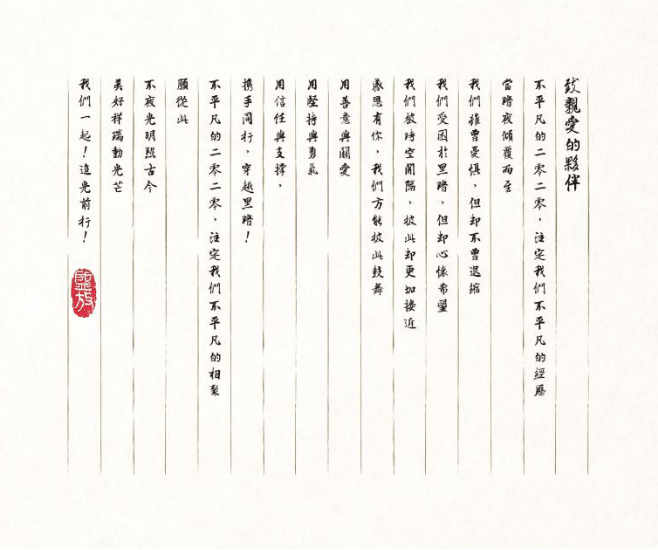 致親愛的夥伴
不平凡的二零二零，注定我們不平凡的經歷
當暗夜傾覆而至
我們雖曾憂懼，但卻不曾退縮
我們受困於黑暗，但卻心懷希望
我們被時空間隔，彼此卻更加接近
感恩有你，我們方能彼此鼓舞
用善意與關愛
用堅持與勇氣
用信任與支撐，
攜手同行，穿越黑暗！
不平凡的二零二零，注定我們不平凡的相聚
願從此
不夜光明照古今
美好祥瑞動光芒
我們一起！追光前行！